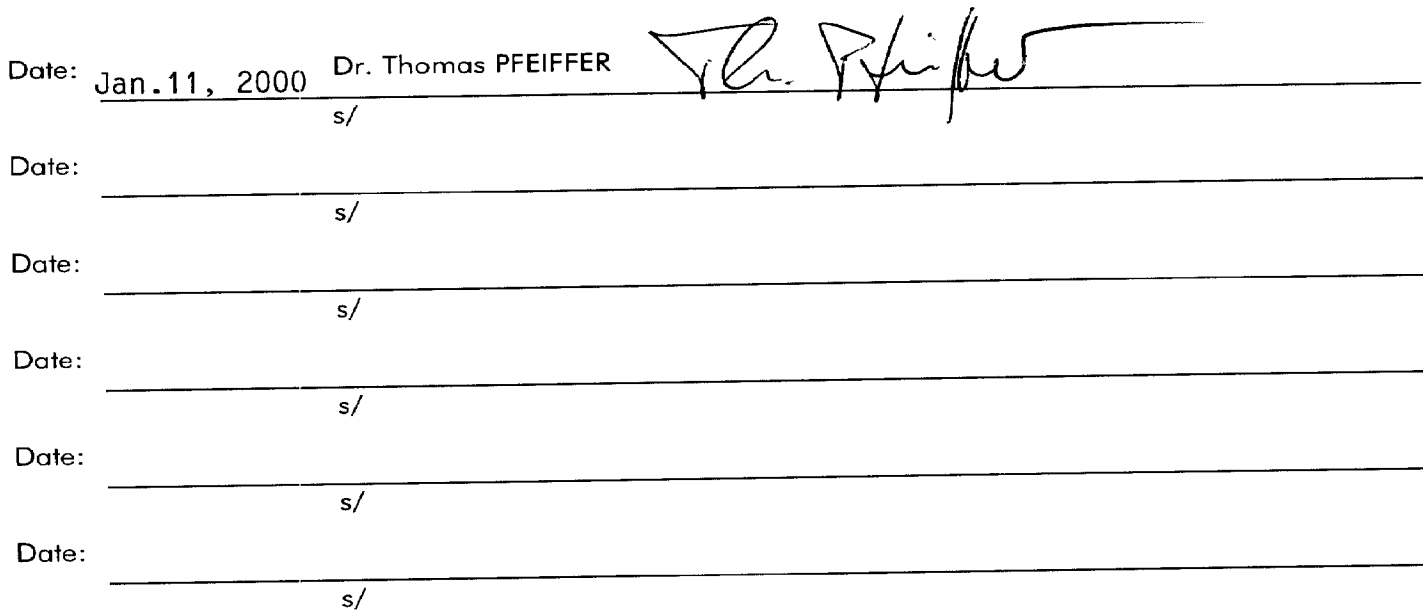 Date: Jan.11, 2000 Dr. Thomas PFEIFFER Th. Pfeiffer
s/
Date:
s/
Date:
s/
Date:
s/
Date:
s/
Date:
s/